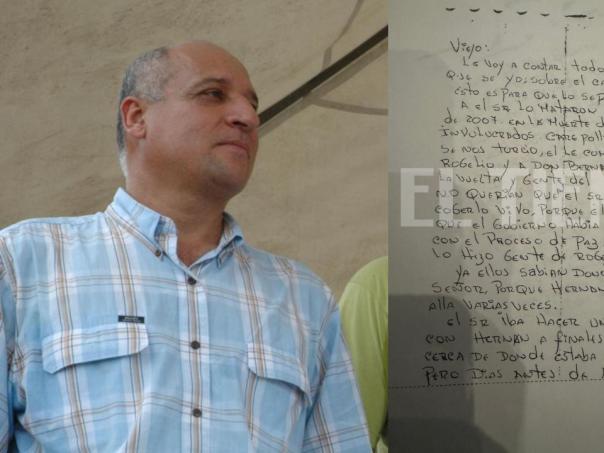 Viejo:
LE VOY A CONTAR todo
QUE SE YO, SOBRE EL CA
ESTO ES PARA QUE LO SEP
A EL SR LO MATARON
de 2007. EN LA MUERTE d
INVOLUCRADOS CARE POLL
SE NOS TORCIO, EL LE CON
ROGELIO Y A DON BERN
LA VUELTA, GENTE DEL
NO QUERIAN QUE EL SR
COGERLO VIVO, PORQUE E
QUE EL GOBIERNO HABIA
CON EL PROCESO DE PAZ
LO HIZO GENTE DE ROGE
YA ELLOS SABIAN DONd
SEÑOR, PORQUE HERNAN
ALLA VARIAS VECES.
El SR IBA HACER UN
CON HERNAN A FINALES
CERCA DE DONDE ESTABA
PERO DIAS ANTES de